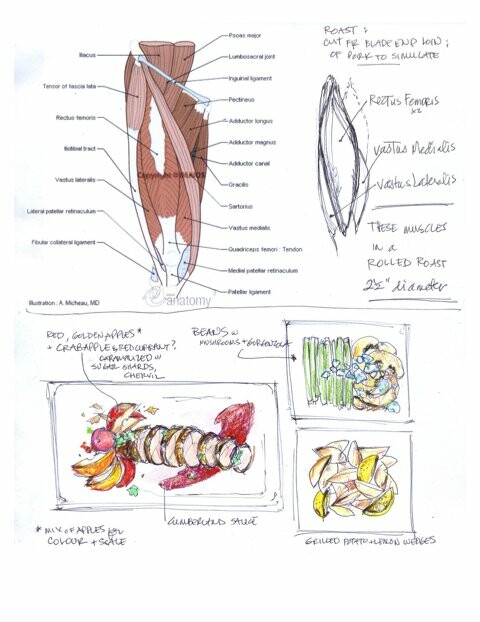 Psoas major
Iliacus
Lumbosacral joint
Inguinal ligament
Tensor of fascia lata
Pectineus
Rectus femoris
Adductor longus
Adductor magnus
Iliotibial tract
Adductor canal
Gracilis
Vastus lateralis
Sartorius
Lateral patellar retinaculum
Vastus medialis
Quadriceps femori : Tendon
Fibular collateral ligament
Medial patellar retinaculum
Patellar ligament
Illustration : A. Micheau, MD
anatomy
ROAST:
CUT FR BLADE END LOIN
OF PORK TO SIMULATE
Rectus Femoris
x2
Vastus Medialis
Vastus Lateralis
THESE MUSCLES
IN A
ROLLED ROAST
2½" diameter
RED, GOLDEN APPLES *
+ CRABAPPLE & RED CURRANT?
CARAMALIZED W
SUGAR SHARDS,
CHERVIL
BEANS W
MUSHROOMS + GORGONZOLA
CUMBERLAND SAUCE
* MIX OF APPLES FOR
COLOUR + SCALE
GRILLED POTATO + LEMON WEDGES